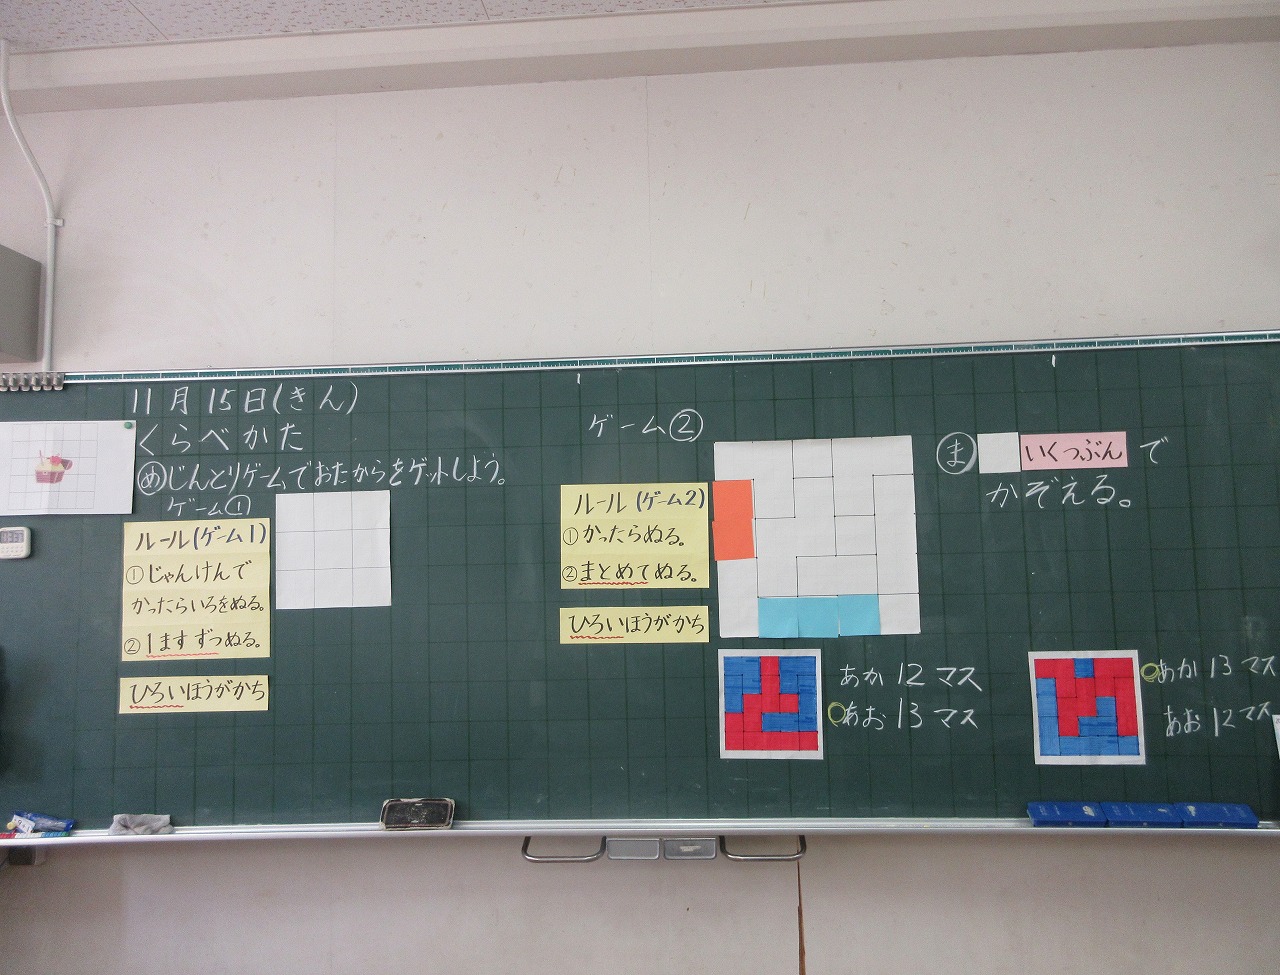 11月15日(きん)
くらべかた
め じんとりゲームでおたからをゲットしよう。
ゲーム①
ルール(ゲーム1)
①じゃんけんで
かったらいろをぬる。
②1ますずつぬる。
ひろいほうがかち
ゲーム②
ルール(ゲーム2)
①かったらぬる。
②まとめてぬる。
ひろいほうがかち
あか12マス
あお13マス
ま いくつぶんで
かぞえる。
あか13マス
あお12マス